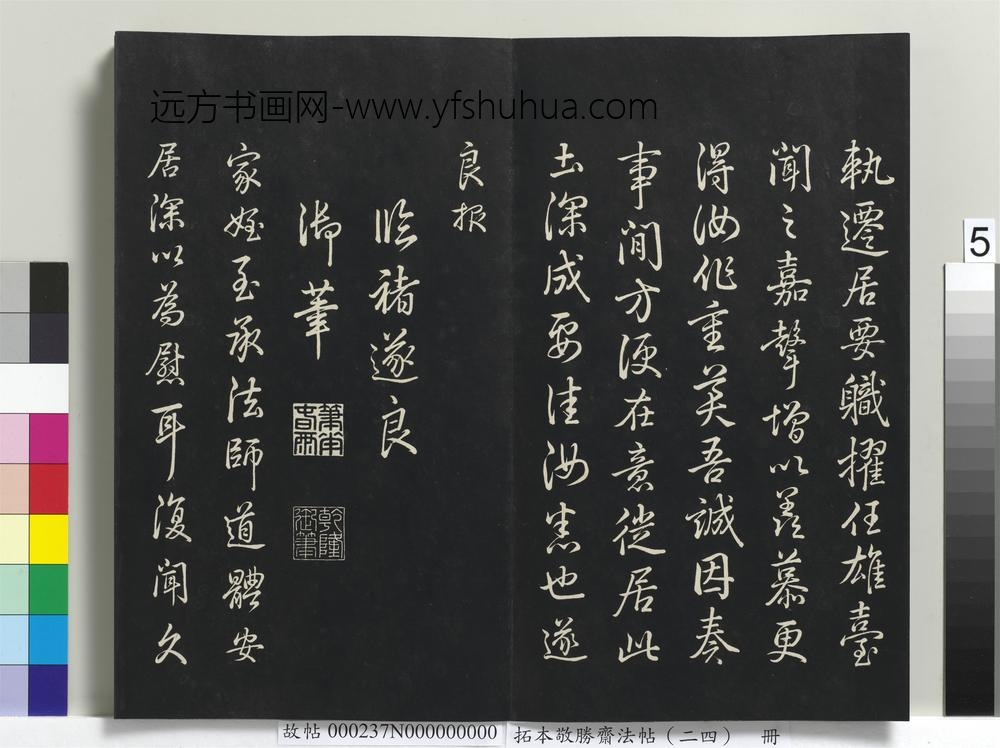 远方书画网-www.yfshuhua.com
執遷居要職擢任雄臺
聞之嘉聲增以羨慕更
得汝作重英吾誠因奏
事閒方便在意從居此
土深成要佳汝悉也遂
良报
臨褚遂良
御筆
乾隆御筆
家姪至承法師道體安
居深以為慰耳復聞久
5
故帖 000237N000000000
拓本敬勝齋法帖（二四） 冊